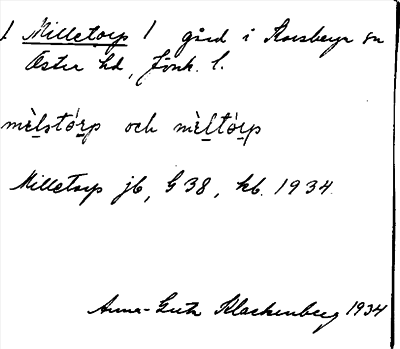 1 Milletorp 1 gård i Korsberga sn
Östra hd, Jönk. l.
mèlstórp och mèltórp
Milletorp jb, G 38, kb. 1934
Anna-Greta Klackenberg 1934